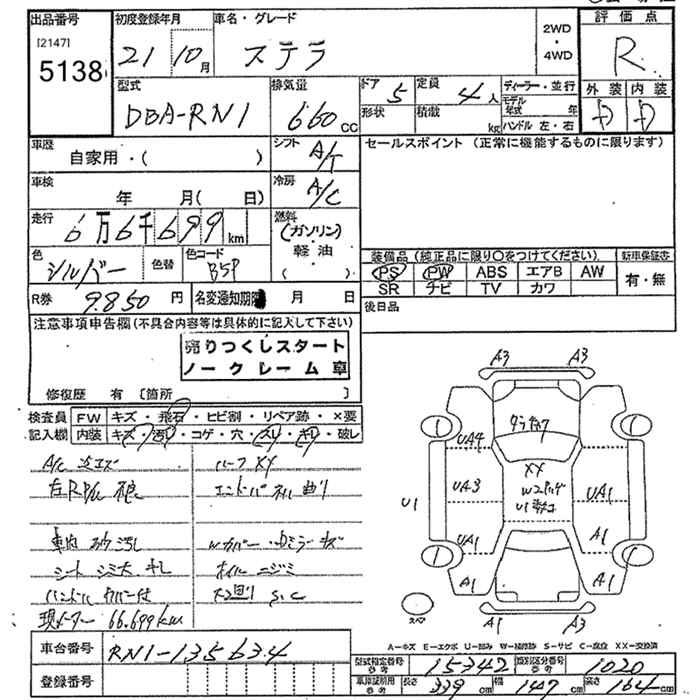 出品番号 初度登録年月 車名・グレード 評価点
[2147]
5138
21 10月
ステラ
2WD・4WD
R
型式 排気量 ドア 定員 ディーラー・並行 外装 内装
DBA-RN1 660cc 5 4人
形状 積載 kg モデル年式 年
ハンドル 左・右
D D
車歴 自家用・( ) シフト A/T
セールスポイント(正常に機能するものに限ります)
車検 年 月( 日) 冷房 A/C
走行 6万6千699km 燃料 ガソリン
軽油
( )
色 シルバー 色替 色コード B5P
装備品(純正品に限り○をつけてください。) 新車保証書
PS PW ABS エアB AW 有・無
SR ナビ TV カワ
R券 9.850円 名変通知期限 月 日
後日品
注意事項申告欄(不具合内容等は具体的に記入して下さい)
売りつくしスタート
ノークレーム車
修復歴 有〔箇所 〕
検査員記入欄 FW キズ・飛石・ヒビ割・リペア跡・×要
内装 キズ・汚れ・コゲ・穴・スレ・キレ・破レ
車内
シート シミ大
ハンドルカバー付
ホイル ニジミ
下廻り S.C
現メーター 66.699km
車台番号 RN1-135634
登録番号
A3 A3
1 1
UA4
XX
UA3
W2
U1
U1
UA1
UA1
A1
1 1
A1 A1
スペア
A1 A3
A=キズ E=エクボ U=凹み W=補修跡 S=サビ C=腐食 XX=交換済
型式指定番号 参考 15342 類別区分番号 参考 1020
車庫証明用 参考 長さ 339cm 幅 147cm 高さ 164cm